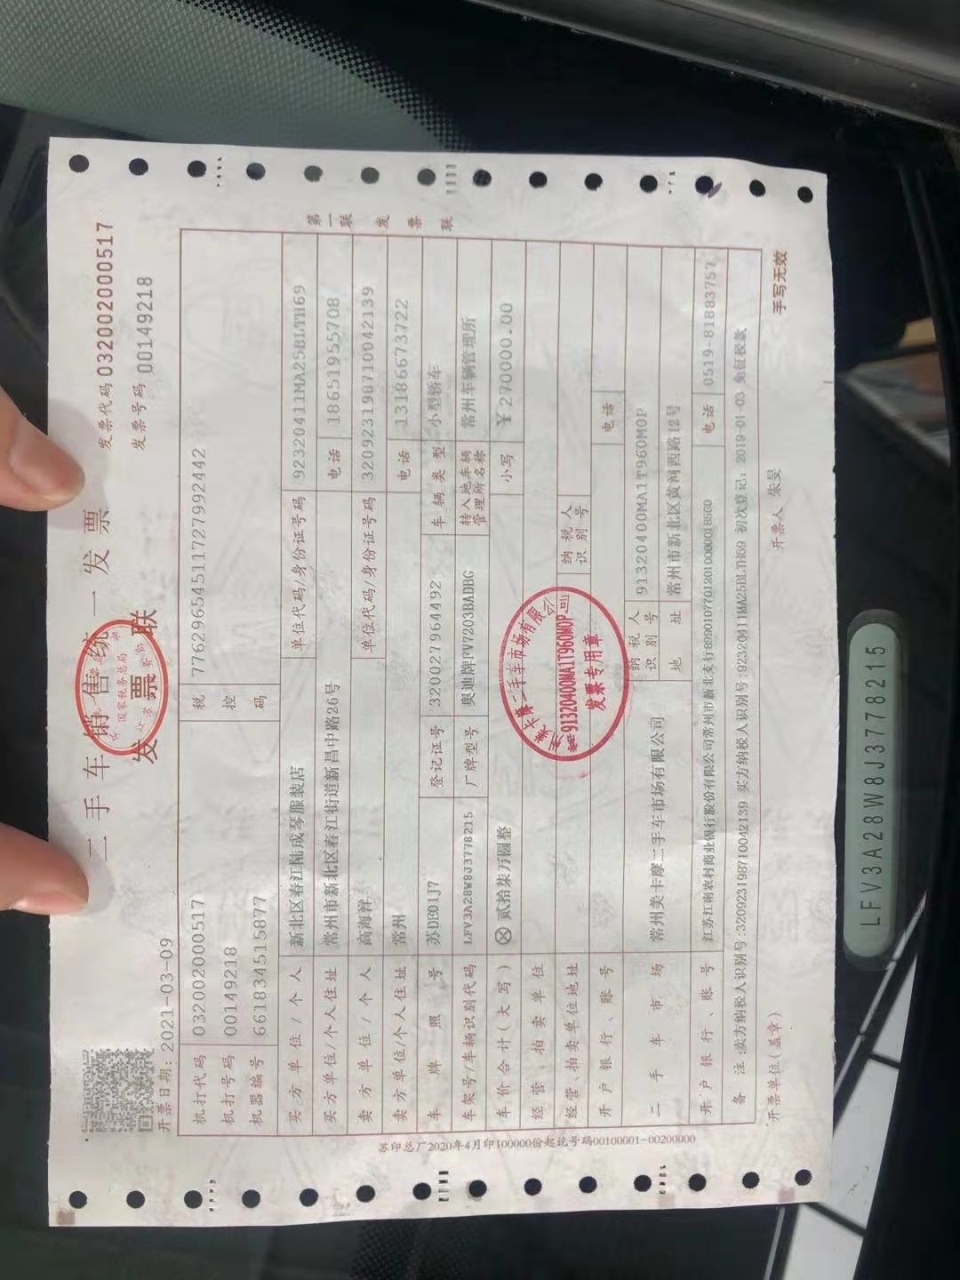 二手车销售统一发票
发票联
发票代码 032002000517
发票号码 00149218
开票日期: 2021-03-09
机打代码 032002000517
机打号码 00149218
机器编号 661834515877
税控码 7762965451172799​2442
买方单位/个人 新北区春江陆成琴服装店 单位代码/身份证号码 92320411MA25BLTH69
买方单位/个人住址 常州市新北区春江街道新昌中路26号 电话 18651955708
卖方单位/个人 高海祥 单位代码/身份证号码 320923198710042139
卖方单位/个人住址 常州 电话 13186673722
车牌照号 苏DE01J7 登记证号 320027964492 车辆类型 小型轿车
车架号/车辆识别代码 LFV3A28W8J3778215 厂牌型号 奥迪牌FV7203BADBG 转入地车辆管理所名称 常州车辆管理所
车价合计(大写) ⊗ 贰拾柒万圆整 小写 ¥270000.00
经营、拍卖单位
经营、拍卖单位地址 纳税人识别号
开户银行、账号 电话
二手车市场 常州美卡摩二手车市场有限公司 纳税人识别号 91320400MA1T960M0P
地址 常州市新北区黄河西路12号
开户银行、账号 江苏江南农村商业银行股份有限公司常州市新北支行 电话 0519-81883757
备注: 卖方纳税人识别号:320923198710042139 买方纳税人识别号:92320411MA25BLTH69 初次登记: 2019-01-03 免征税款
开票单位(盖章) 开票人 朱旻 手写无效
第一联 发票联
苏印总厂2020年4月印100000份起讫号码00100001-00200000
国家税务总局
二手车市场有限
91320400MA1T960M0P
发票专用章
LFV3A28W8J3778215